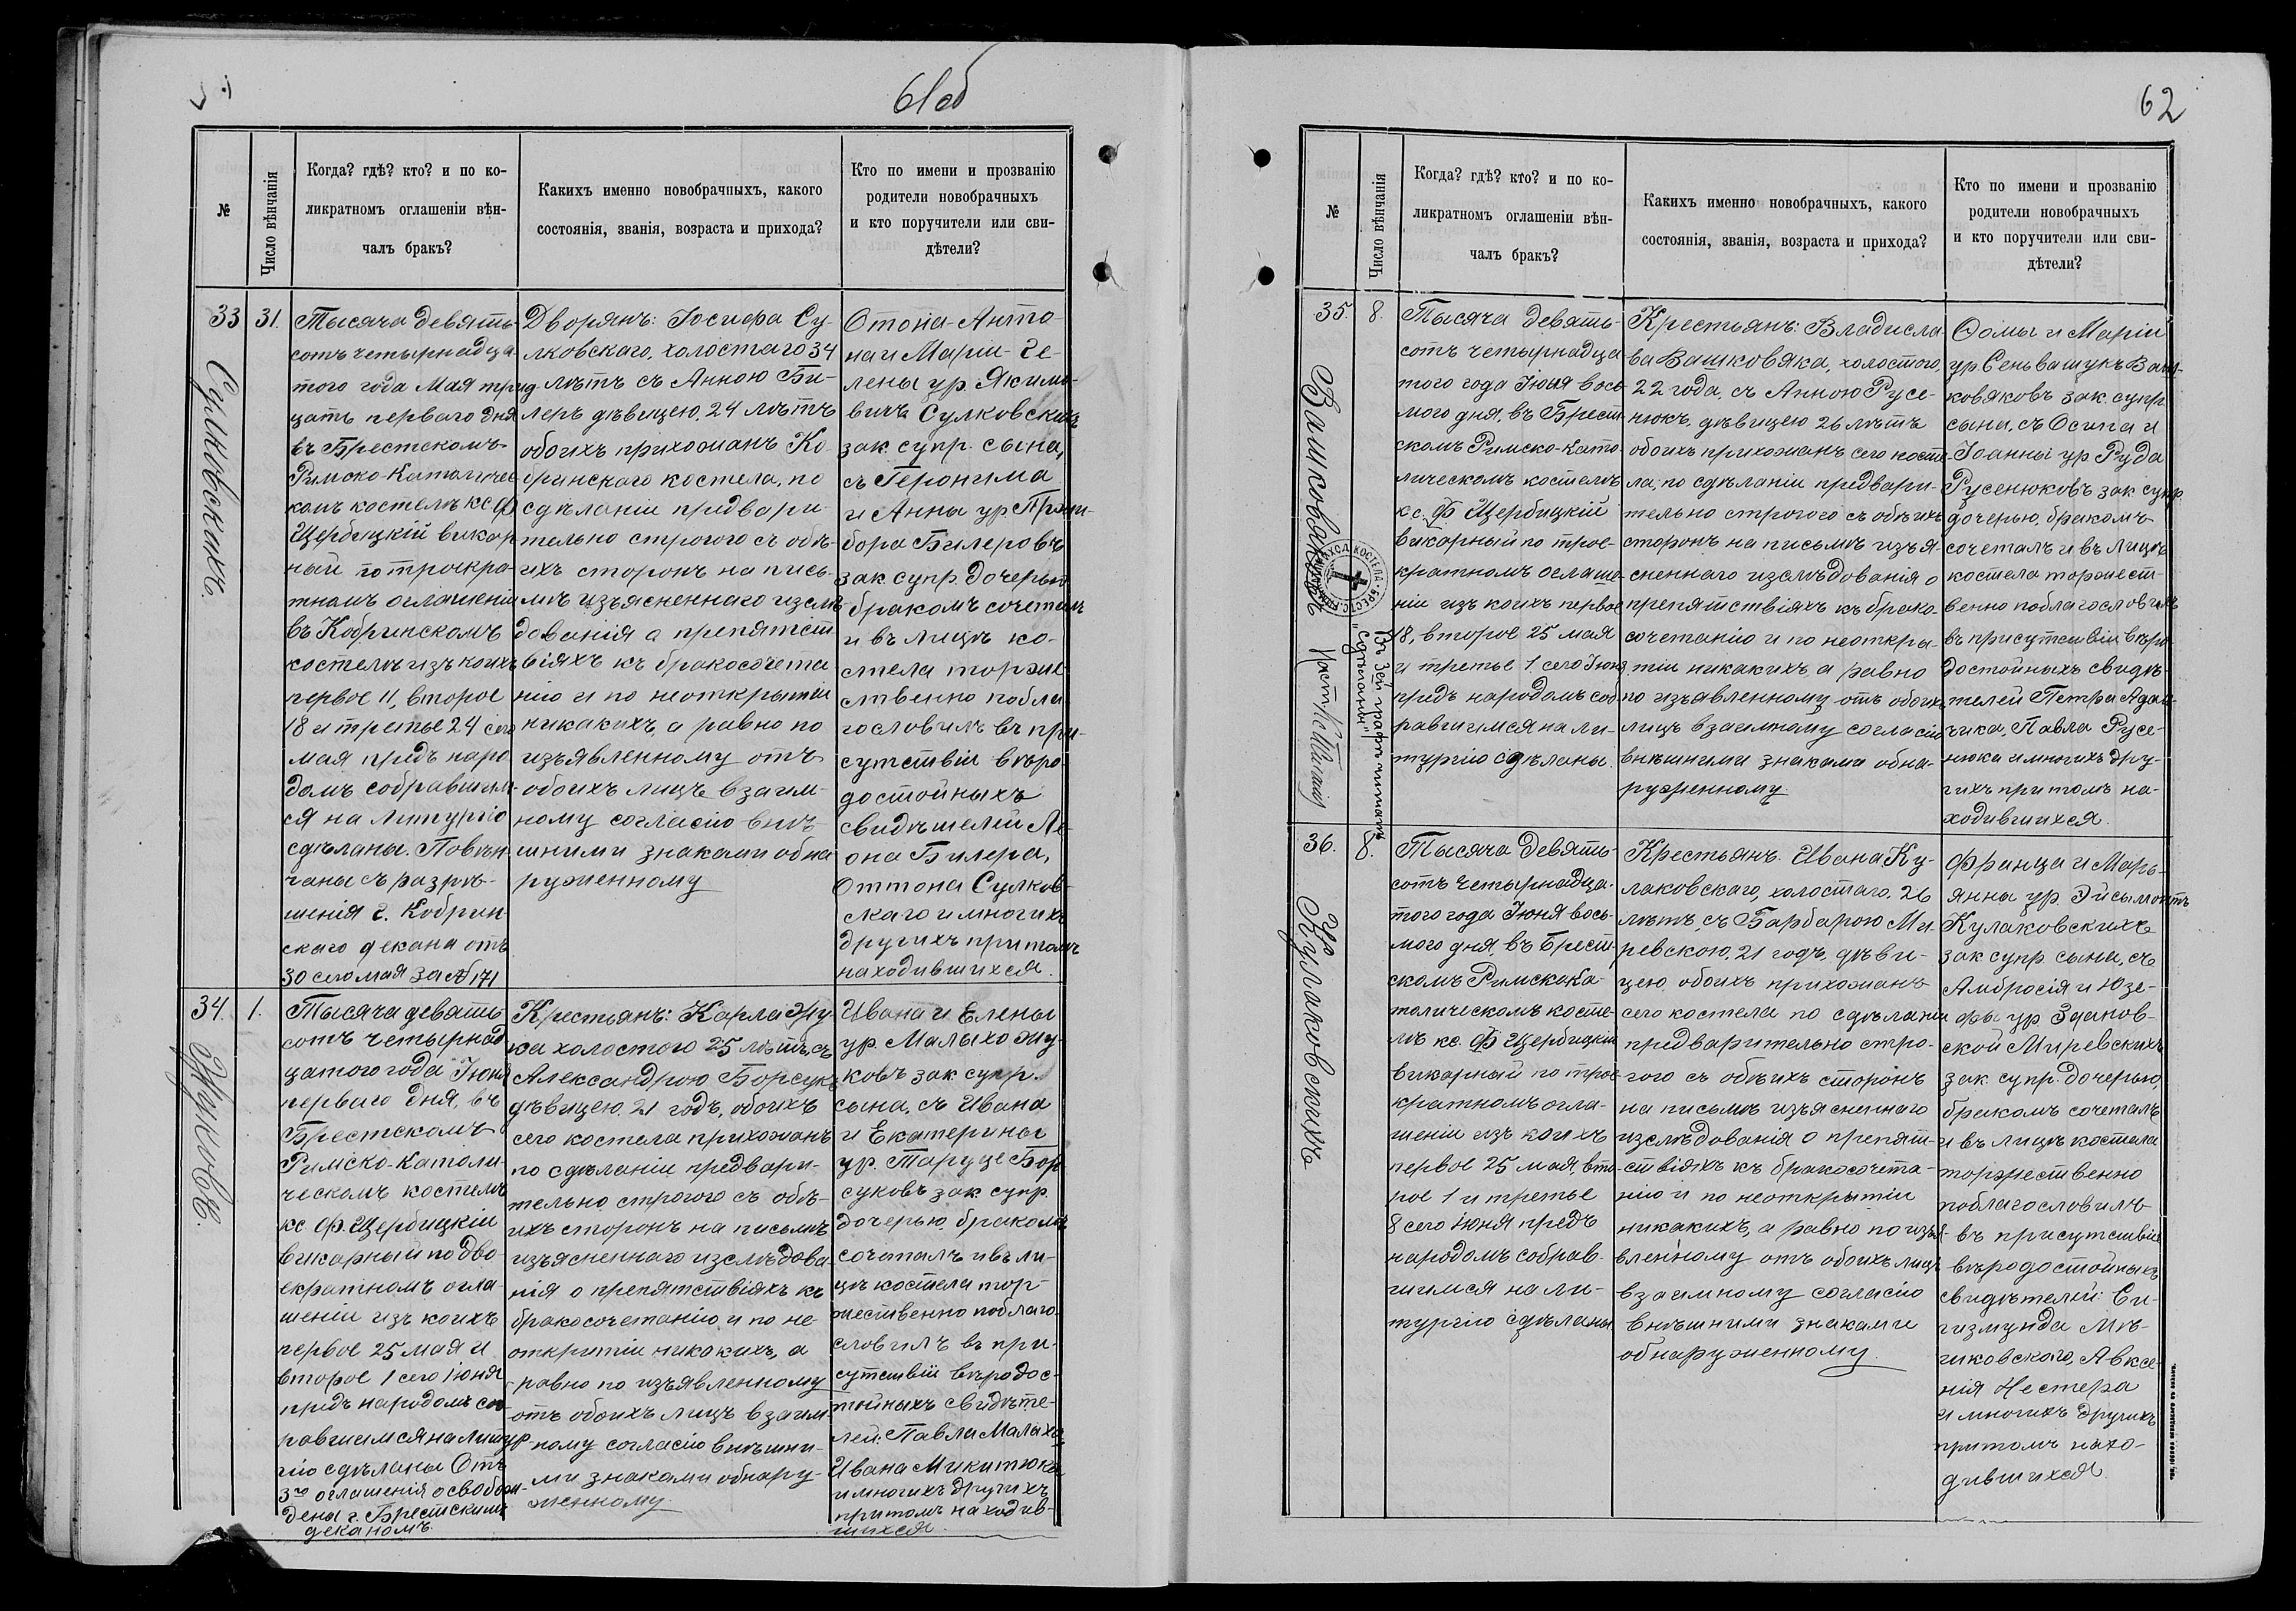 61об
№
Число вѣнчанія
Когда? гдѣ? кто? и по ко-
ликратномъ оглашеніи вѣн-
чалъ бракъ?
Какихъ именно новобрачныхъ, какого
состоянія, званія, возраста и прихода?
Кто по имени и прозванію
родители новобрачныхъ
и кто поручители или сви-
дѣтели?
33
Сулковскихъ.
31.
Тысяча девять-
сотъ четырнадца-
того года Мая трид-
цать перваго дня
въ Брестскомъ
Римско-Католичес-
комъ костелѣ кс Ф
Щербицкій викар
ный по троекра-
тномъ оглашеніи
въ Кобринскомъ
костелѣ изъ коихъ
первое 11, второе
18 и третье 24 сего
мая предъ наро
домъ собравшим-
ся на литургію
сдѣланы. Повѣн-
чаны съ разрѣ-
шенія г. Кобрин-
скаго декана отъ
30 сего мая за № 171
Дворянъ: Іосифа Су-
лковскаго, холостаго 34
лѣтъ съ Анною Би-
леръ дѣвицею, 24 лѣтъ
обоихъ прихожанъ Ко-
бринскаго костела, по
сдѣланіи предвари-
тельно строгого съ обѣ-
ихъ сторонъ на пись-
мѣ изъясненнаго изслѣ-
дованія о препятст
віяхъ къ бракосочета
нію и по неоткрытіи
никакихъ, а равно по
изъявленному отъ
обоихъ лицъ взаим-
ному согласію внѣ-
шними знаками обна
руженному
Отона-Анто-
на и Маріи-Ге-
лены ур Якимо-
вичъ Сулковскихъ
зак. супр. сына,
съ Геронима
и Анны ур.
бора Билеровъ
зак. супр. дочерью
бракомъ сочеталъ
и въ лицѣ ко-
стела торже
ственно побла
гословилъ въ при-
сутствіи вѣро-
достойныхъ
свидѣтелей Ле-
она Билера,
Оттона Сулков-
скаго и многихъ
другихъ притомъ
находившихся.
34.
Жуковъ.
1.
Тысяча девять
сотъ четырнад
цатого года Іюня
перваго дня, въ
Брестскомъ
Римско-Католи-
ческомъ костелѣ
кс Ф. Щербицкій
викарный по дво
екратномъ огла-
шеніи изъ коихъ
первое 25 мая и
второе 1 сего іюня
предъ народомъ соб-
равшимся на литур
гію сдѣланы Отъ
3го оглашенія освобож-
дены г. Брестскимъ
деканомъ.
Крестьянъ: Карла Жу-
ка холостого 25 лѣтъ, съ
Александрою Борсукъ
дѣвицею, 21 годъ, обоихъ
сего костела прихожанъ
по сдѣланіи предвари-
тельно строгого съ обѣ-
ихъ сторонъ на письмѣ
изъясненнаго изслѣдова-
нія о препятствіяхъ къ
бракосочетанію и по не-
открытіи никакихъ, а
равно по изъявленному
отъ обоихъ лицъ взаим-
ному согласію внѣшни-
ми знаками обнару-
женному
Ивана и Елены
ур. Малыхо Жу-
ковъ зак. супр.
сына, съ Ивана
и Екатерины
ур. Таруце Бор
суковъ зак супр.
дочерью, бракомъ
сочеталъ и въ ли-
цѣ костела тор-
жественно поблаго-
словилъ въ при-
сутствіи вѣродос-
тойныхъ свидѣте-
лей: Павла Малахо,
Ивана Микитюка
и многихъ другихъ
притомъ находив-
шихся.
62
№
Число вѣнчанія
Когда? гдѣ? кто? и по ко-
ликратномъ оглашеніи вѣн-
чалъ бракъ?
Какихъ именно новобрачныхъ, какого
состоянія, званія, возраста и прихода?
Кто по имени и прозванію
родители новобрачныхъ
и кто поручители или сви-
дѣтели?
35.
Вашковяковъ
8.
Въ 3ей графѣ читать
"сдѣланы"
Тысяча девять-
сотъ четырнадца
того года Іюня вось-
мого дня, въ Брест-
скомъ Римско-Като
лическомъ костелѣ
кс. Ф Щербицкій
викарный по трое-
кратномъ оглаше-
ніи изъ коихъ первое
18, второе 25 мая
и третье 1 сего Іюня
предъ народомъ соб-
равшимся на ли-
тургію сдѣланы.
Крестьянъ: Владисла
ва Вашковяка, холостого,
22 года, съ Анною Русе-
нюкъ, дѣвицею 26 лѣтъ
обоихъ прихожанъ сего косте-
ла, по сдѣланіи предвари-
тельно строгого съ обѣихъ
сторонъ на письмѣ изъя-
сненнаго изслѣдованія о
препятствіяхъ къ брако-
сочетанію и по неоткры-
тіи никакихъ, а равно
по изъявленному отъ обоихъ
лицъ взаимному согласію
внѣшними знаками обна-
руженному.
Ѳомы и Маріи
ур Сеньвашукъ Ваш-
ковяковъ зак. супр.
сына, съ Осипа и
Іоанны ур Руда
Русенюковъ зак супр
дочерью, бракомъ
сочеталъ и въ лицѣ
костела торжест-
венно поблагословилъ
въ присутствіи вѣро-
достойныхъ свидѣ-
телей Петра Адам-
чика, Павла Русе-
нюка и многихъ дру-
гихъ притомъ на-
ходившихся.
36.
Кулаковскихъ
8.
Тысяча девять-
сотъ четырнадца-
того года Іюня вось-
мого дня, въ Брест-
скомъ Римскока-
толическомъ косте-
лѣ кс. Ф Щербицкій
викарный по трое
кратномъ огла-
шеніи изъ коихъ
первое 25 мая, вто-
рое 1 и третье
8 сего іюня предъ
народомъ собрав-
шимся на ли-
тургію сдѣланы
Крестьянъ. Ивана Ку-
лаковскаго, холостаго, 26
лѣтъ, съ Барбарою Ми-
ревскою, 21 годъ, дѣви-
цею обоихъ прихожанъ
сего костела по сдѣланіи
предварительно стро-
гого съ обѣихъ сторонъ
на письмѣ изъясненнаго
изслѣдованія о препят-
ствіяхъ къ бракосочета-
нію и по неоткрытіи
никакихъ, а равно по изъя-
вленному отъ обоихъ лицъ
взаимному согласію
внѣшними знаками
обнаруженному.
Франца и Марь-
янны ур. Эйсымонтъ
Кулаковскихъ
зак супр сына, съ
Амбросія и Юзе-
фы ур Здаков-
ской Миревскихъ
зак. супр. дочерью,
бракомъ сочеталъ
и въ лицѣ костела
торжественно
поблагословилъ
въ присутствіи
вѣродостойныхъ
свидѣтелей: Си-
гизмунда Мѣ-
чиковского, Авксе-
нія Нестера
и многихъ другихъ
притомъ нахо-
дившихся